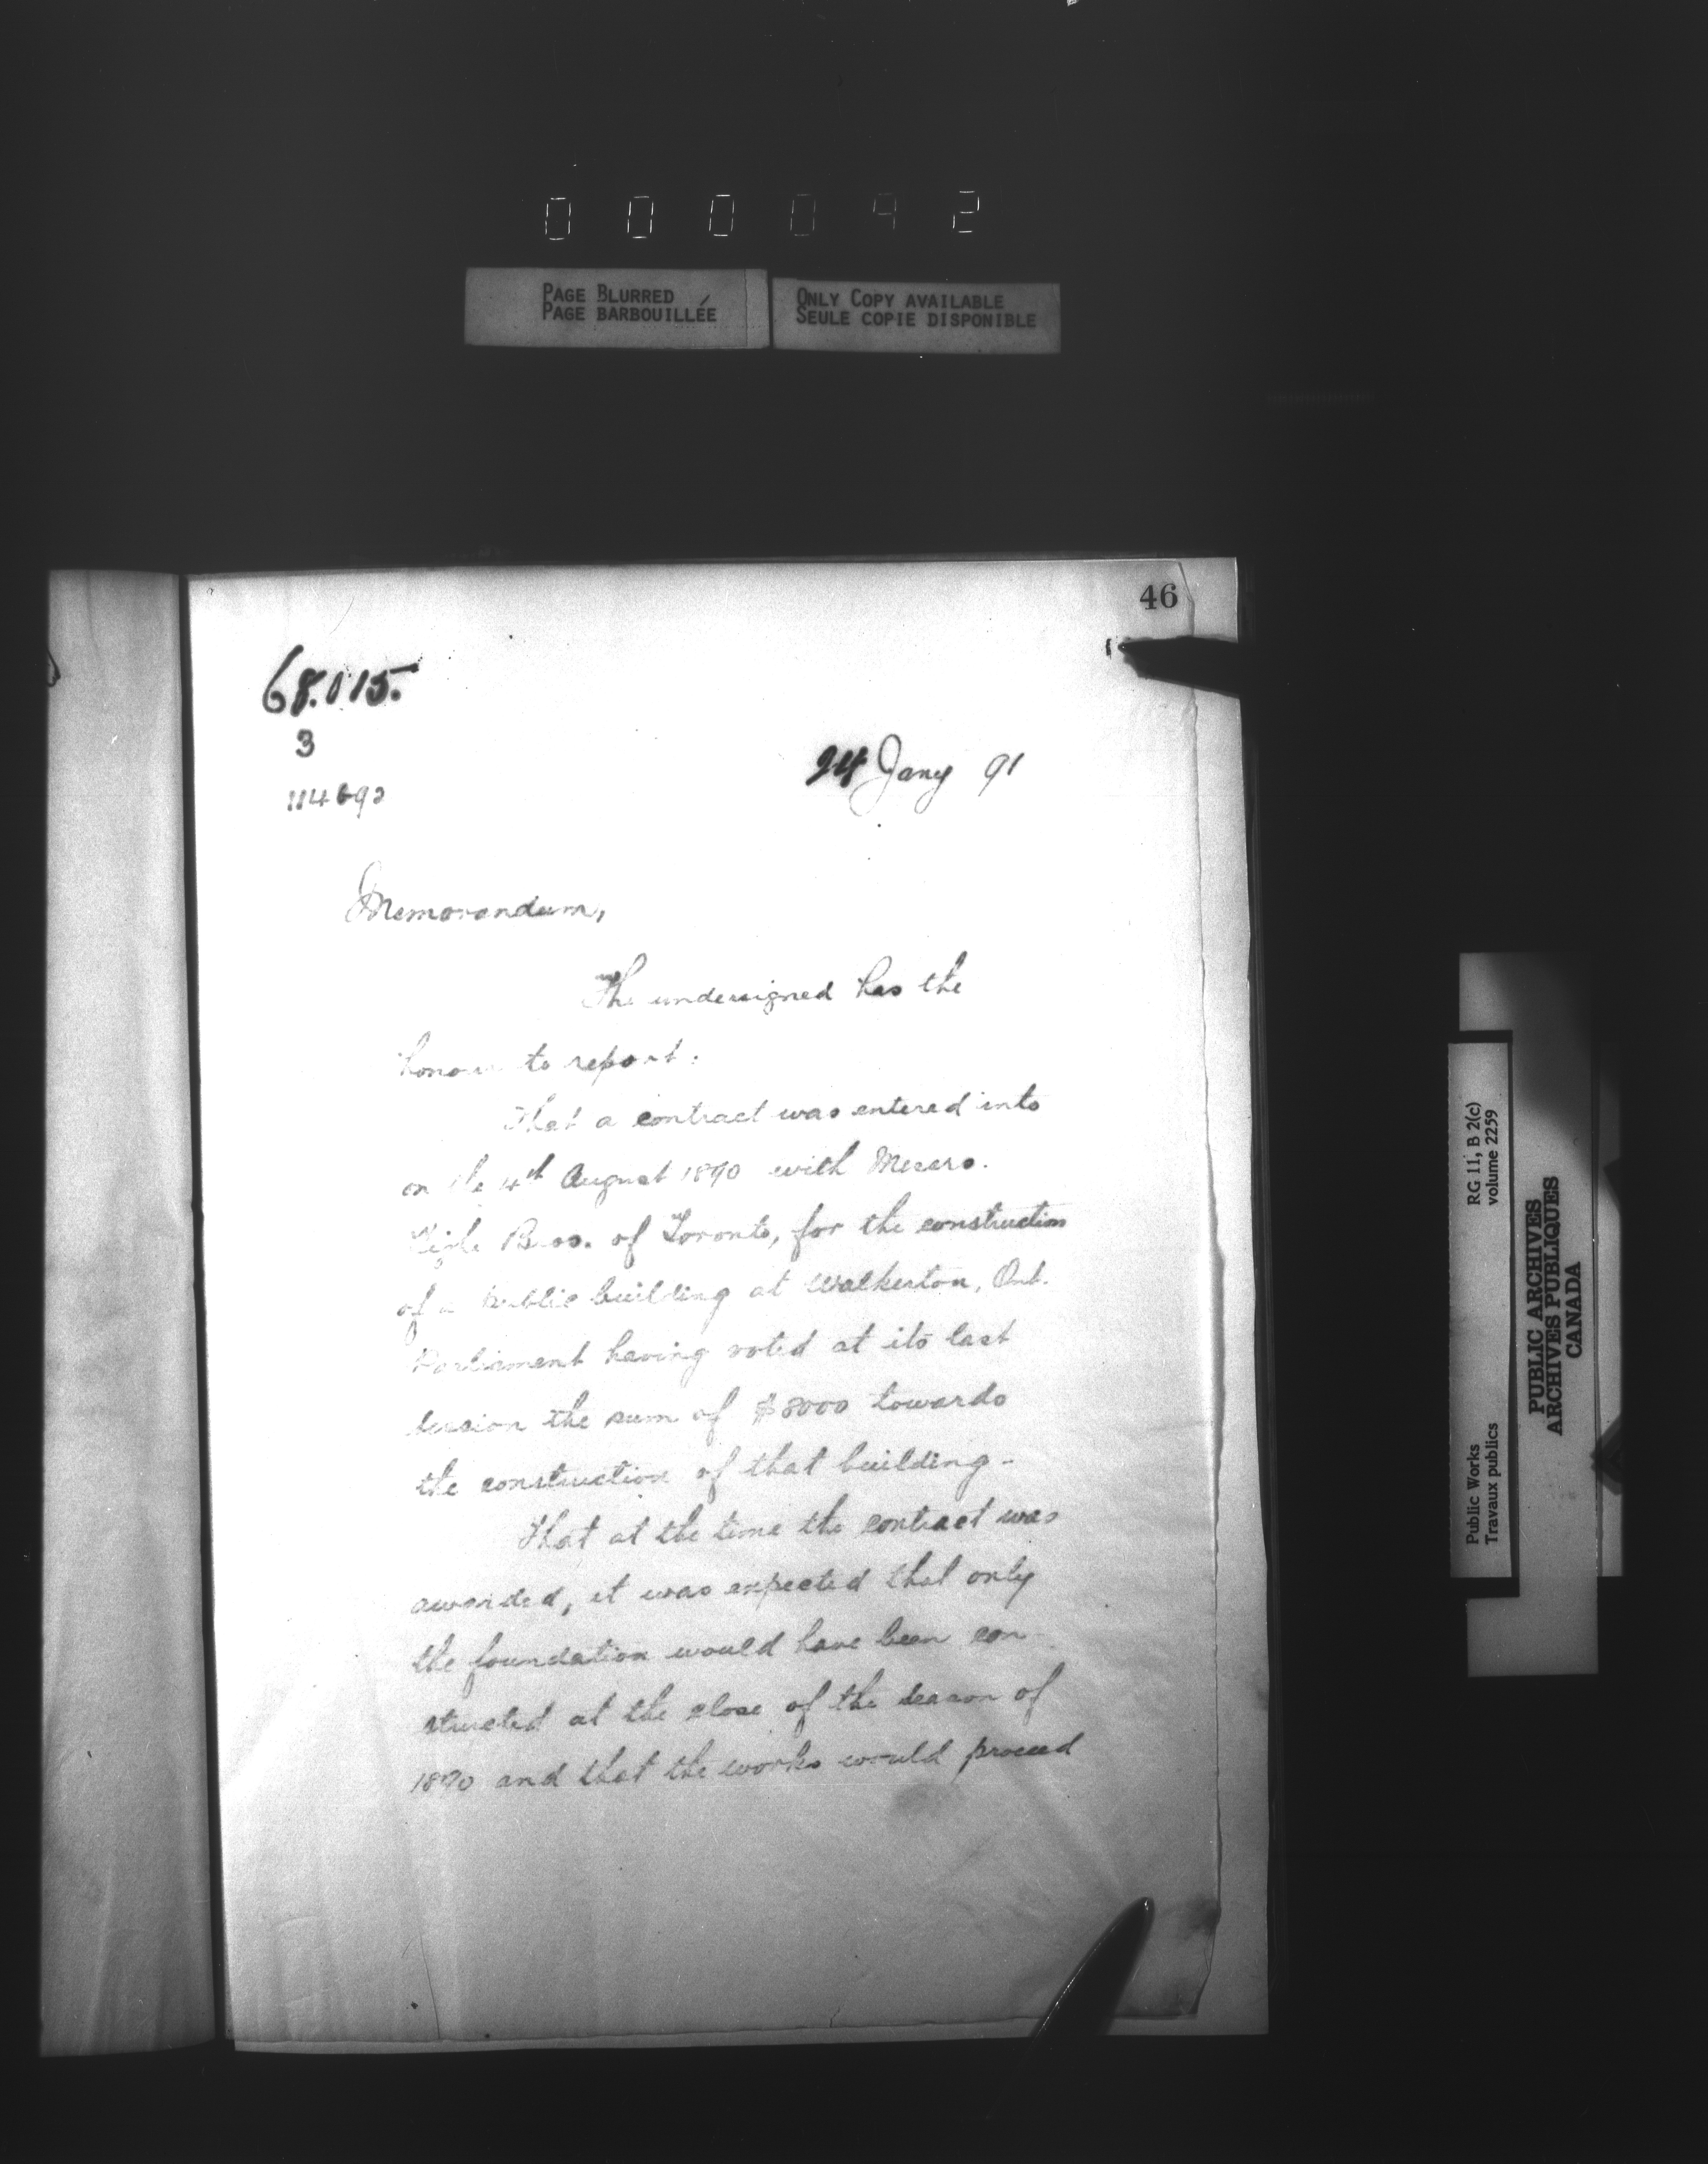 000092
PAGE BLURRED
PAGE BARBOUILLÉE
ONLY COPY AVAILABLE
SEULE COPIE DISPONIBLE
46
68.015.
3
114692
24 Jany 91
Memorandum,
The undersigned has the
honour to report:
That a contract was entered into
on the 4th August 1890 with Messrs.
Bros. of Toronto, for the construction
of a public building at Walkerton, Ont.
Parliament having voted at its last
session the sum of $8000 towards
the construction of that building -
That at the time the contract was
awarded, it was expected that only
the foundation would have been con-
structed at the close of the season of
1890 and that the works would proceed
Public Works
Travaux publics
RG 11, B 2(c)
volume 2259
PUBLIC ARCHIVES
ARCHIVES PUBLIQUES
CANADA